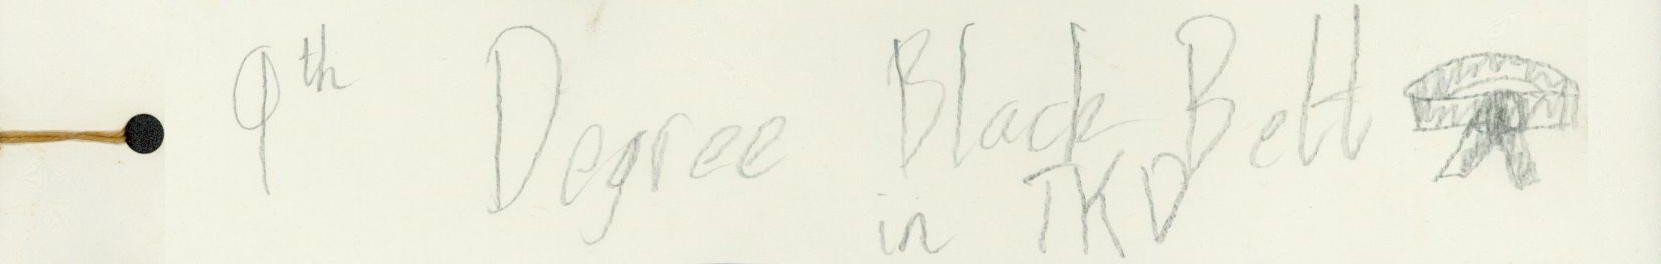 9th Degree Black Belt
in TKD